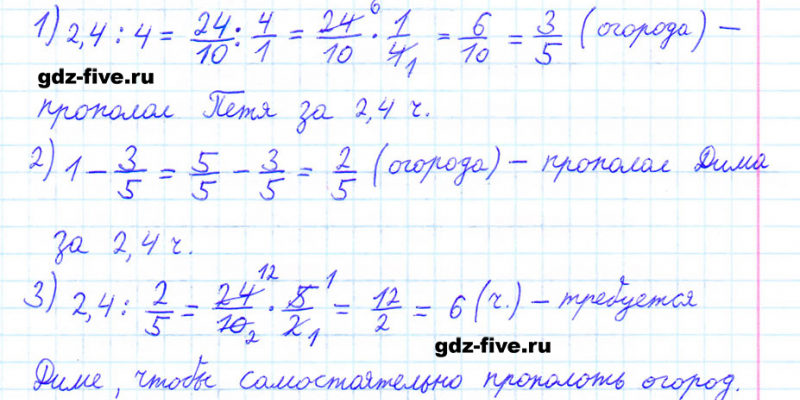 1) 2,4 : 4 = 24/10 : 4/1 = 24/10 6 · 1/4 1 = 6/10 = 3/5 (огорода) –
gdz-five.ru
прополол Петя за 2,4 ч.
2) 1 – 3/5 = 5/5 – 3/5 = 2/5 (огорода) – прополол Дима
за 2,4 ч.
3) 2,4 : 2/5 = 24 12/10 2 · 5 1/2 1 = 12/2 = 6 (ч.) – требуется
gdz-five.ru
Диме, чтобы самостоятельно прополоть огород.